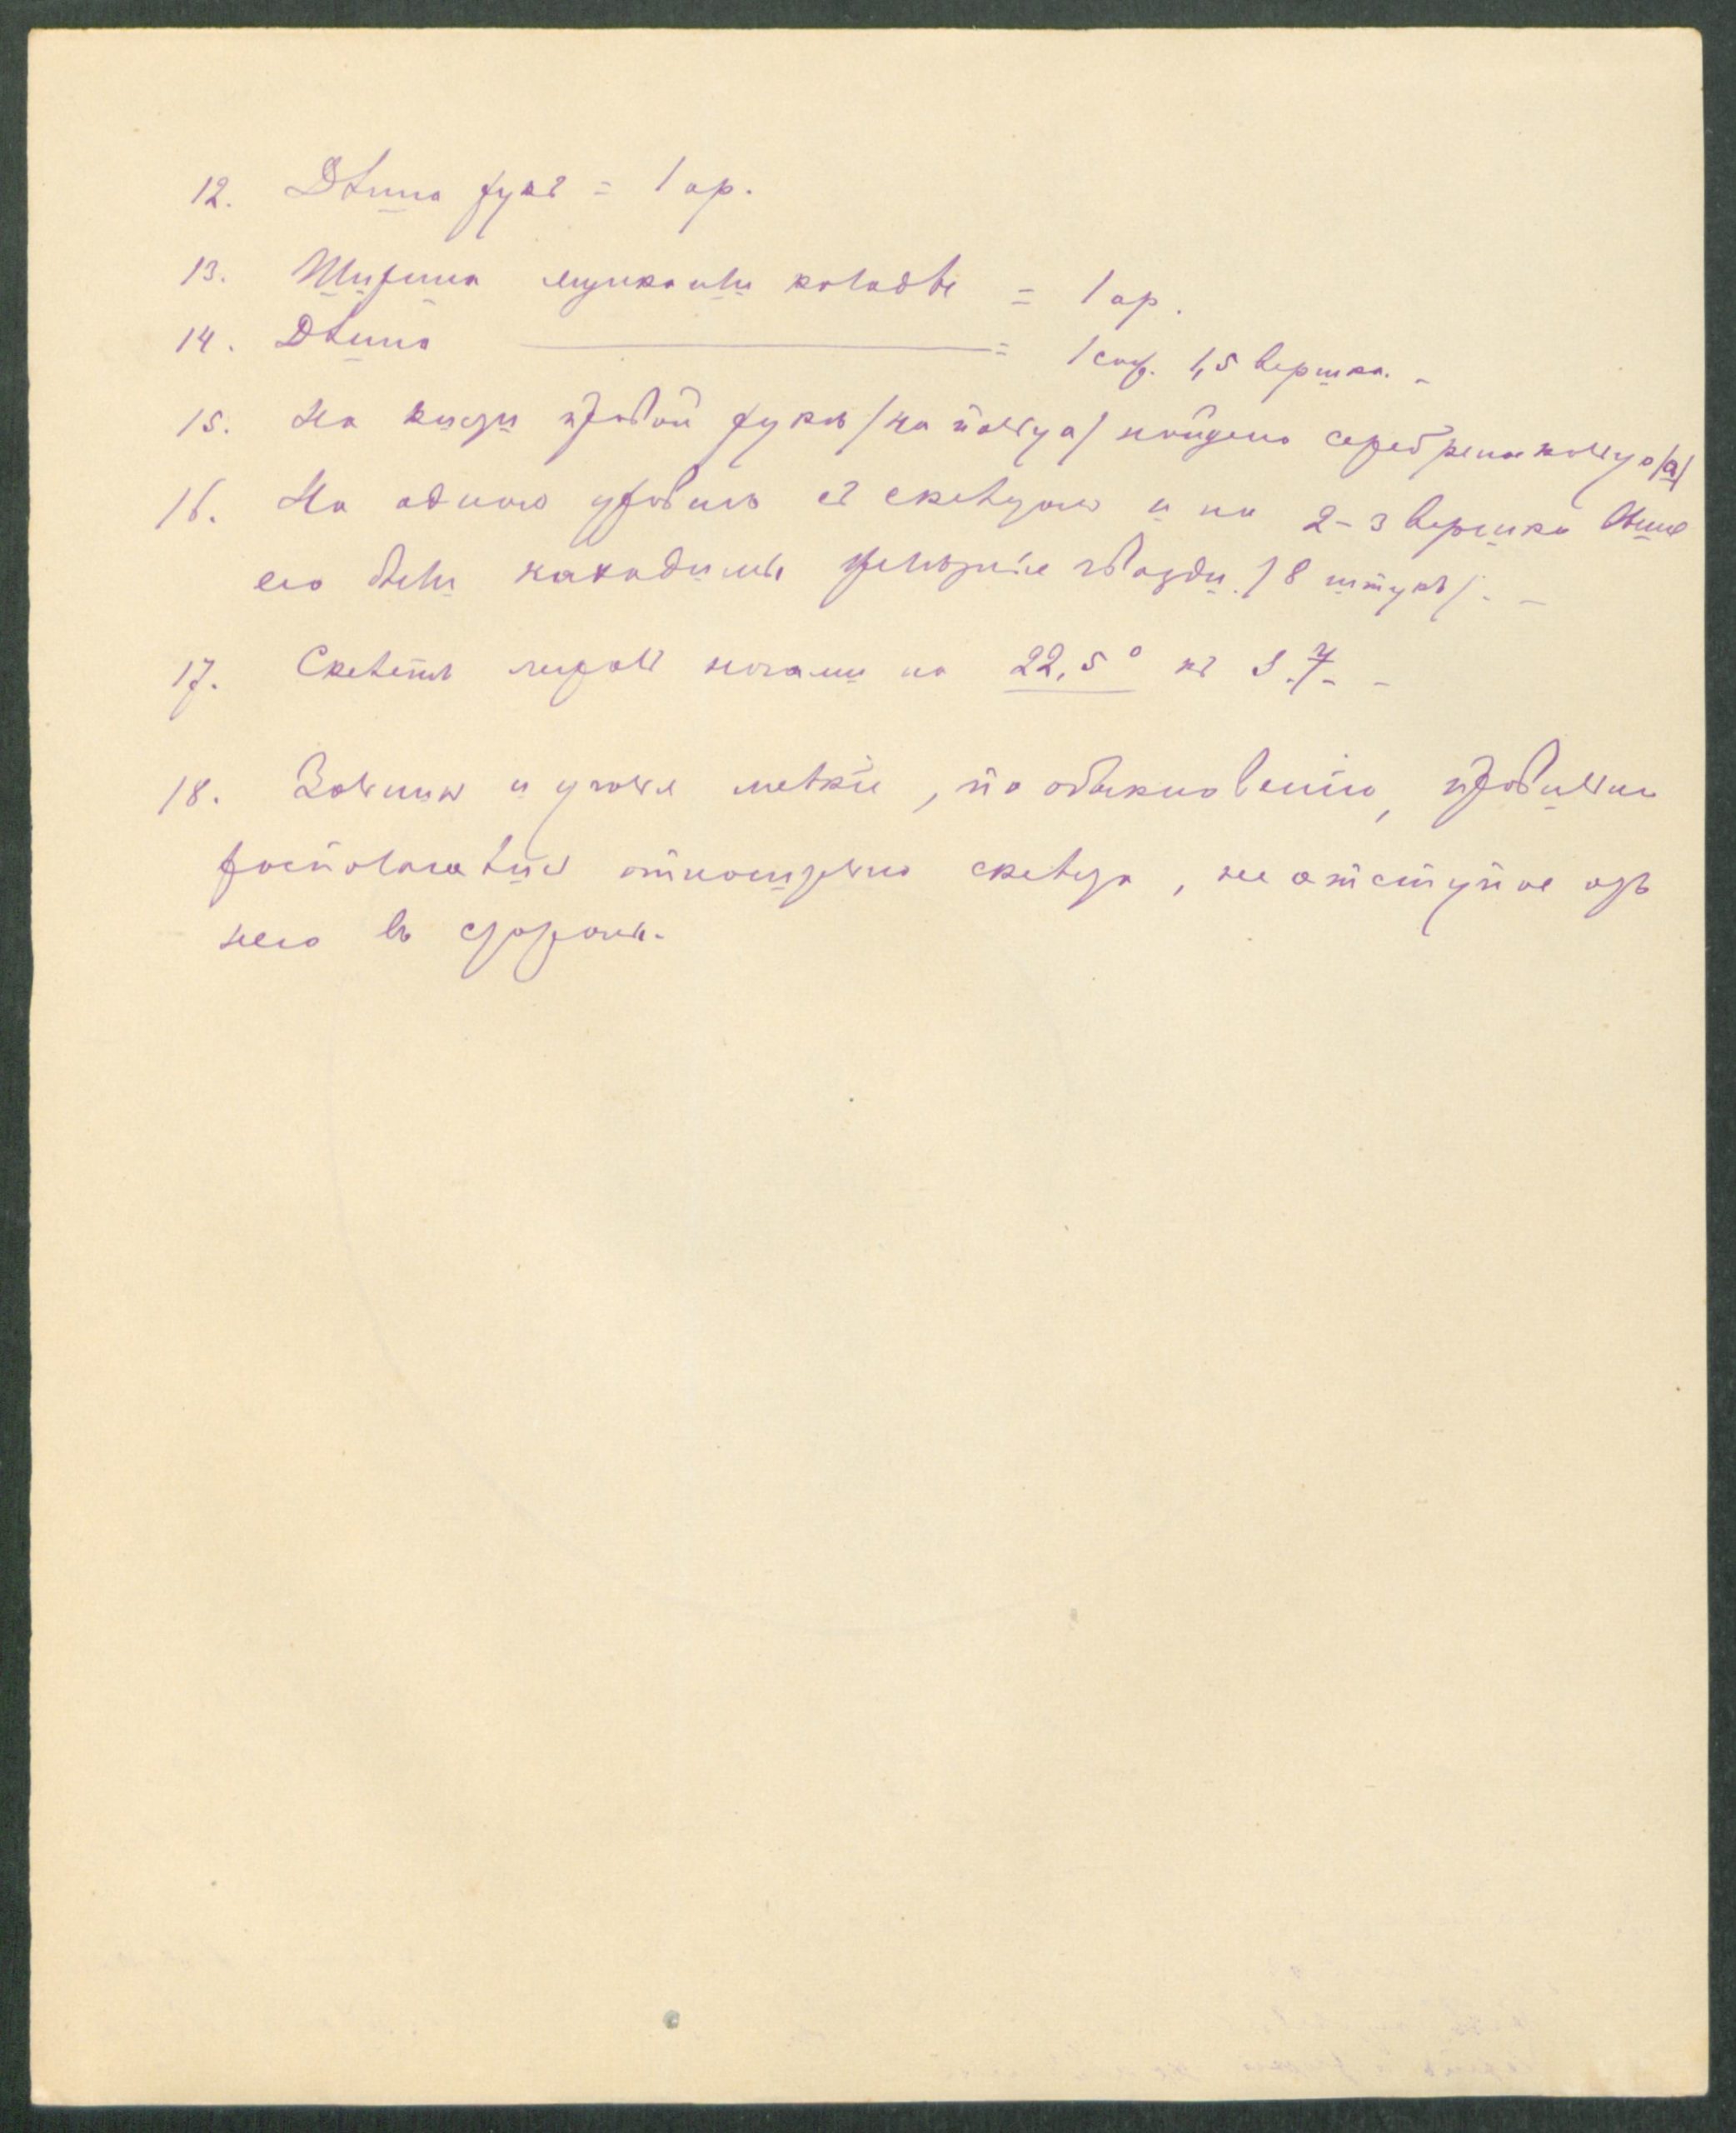 12. Длина рукъ = 1 ар.
13. Ширина колоды = 1 ар.
14. Длина ——— = 1 саж. 1,5 вершка. –
15. На кисти правой руки /на пальца/ найдено серебряное кольцо /а/
16. На одномъ уровнѣ съ скелетомъ и на 2–3 вершка выше
его были находимы желѣзные гвозди. /8 штукъ/. –
17. Скелетъ лежалъ ногами на 22,5° къ –
18. Зольники и уголья мелкіе, по обыкновенію, правильно
располагались относительно скелета, не отступая отъ
него въ стороны.